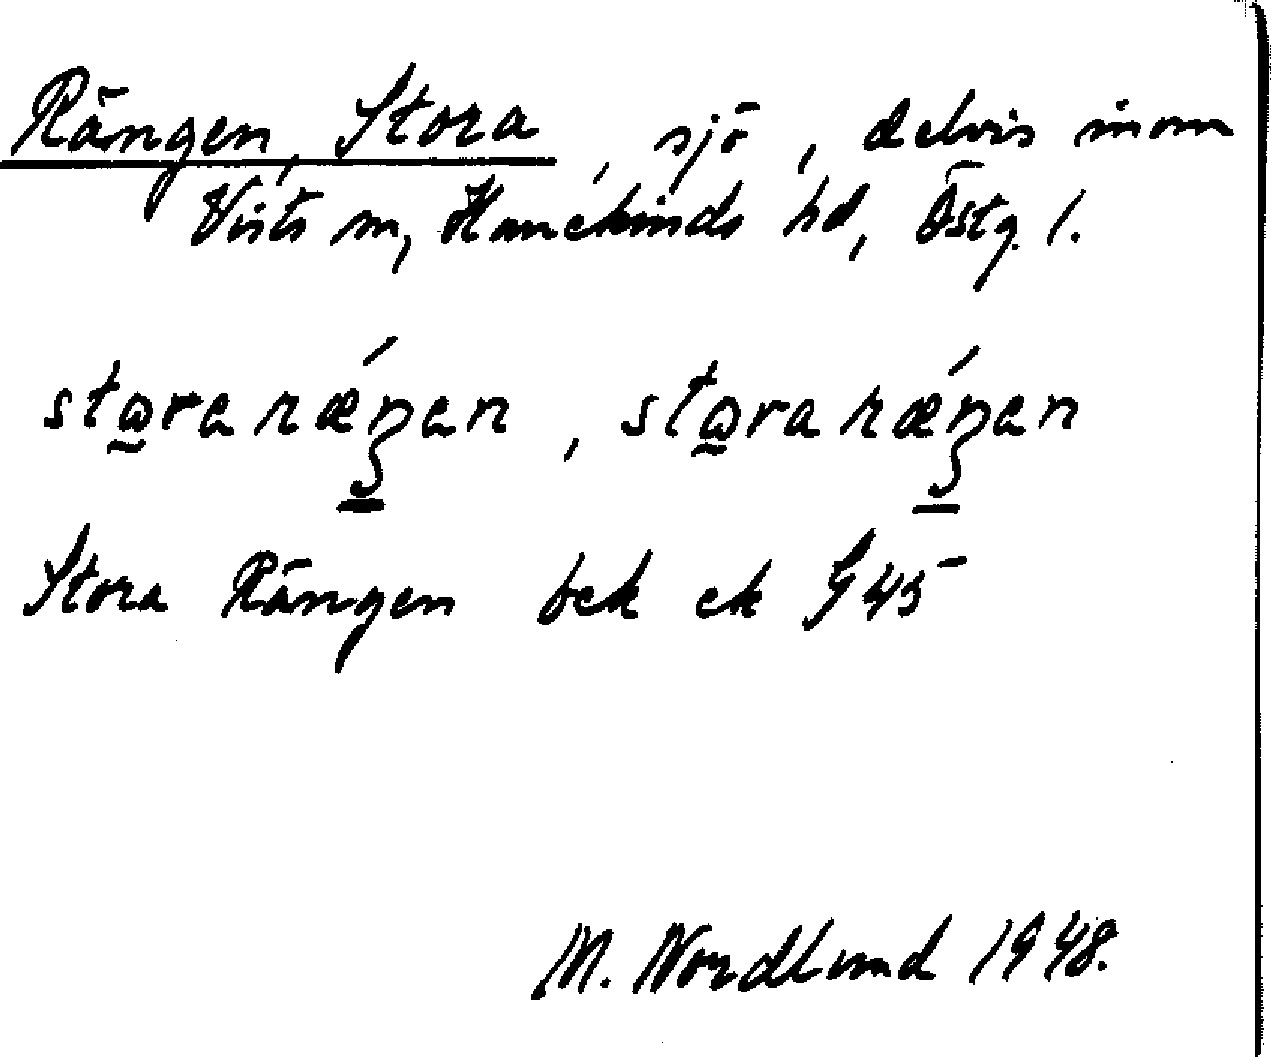 Rängen, Stora, sjö, delvis inom
Vists sn, Hanekinds hd, Östg. l.
stωra rǽŋen, stωra rǽŋen
Stora Rängen bek ek G 45
M. Nordlund 1948.